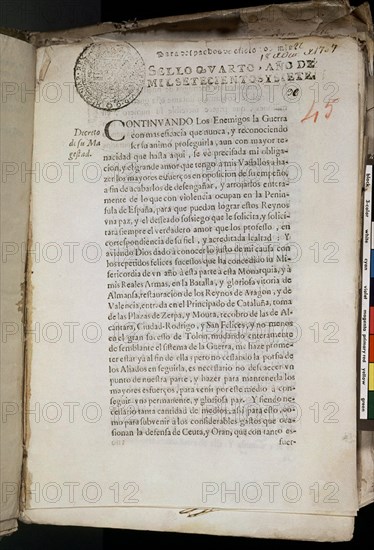 SELLO QVARTO, AÑO DE
MIL SETECIENTOS Y SIETE.
45
Decreto
de su Ma
gestad.
CONTINVANDO Los Enemigos la Guerra
con mas eficacia que nunca, y reconociendo
ser su animo proseguirla, aun con mayor te-
nacidad que hasta aqui, se vè precisada mi obliga-
cion, y el grande amor que tengo à mis Vasallos à ha-
zer los mayores esfuerços en oposicion de su empeño,
a fin de acabarlos de desengañar, y arrojarlos entera-
mente de lo que con violencia ocupan en la Penin-
sula de España, para que puedan lograr estos Reynos
vna paz, y el deseado sossiego que le solicita, y solici-
tarà siempre el verdadero amor que los professo, en
correspondiencia de su fiel, y acreditada lealtad: Y
aviendo Dios dado à conocer lo justo de mi causa con
los repetidos felices sucessos que ha concedido su Mi-
sericordia de vn año à esta parte à esta Monarquia, y à
mis Reales Armas, en la Batalla, y gloriosa vitoria de
Almansa, restauracion de los Reynos de Aragon, y de
Valencia, entrada en el Principado de Cataluña, toma
de las Plazas de Zerpa, y Moura, recobro de las de Al-
cantara, Ciudad-Rodrigo, y San Felices, y no menos
en el gran sucesso de Tolon, mudando enteramente
de semblante el sistema de la Guerra, me haze prome-
ter estar yà al fin de ella; pero no cessando la porfia de
los Aliados en seguirla, es necessario no desfallecer vn
punto de nuestra parte, y hazer para mantenerla los
mayores esfuerços, para venir por este medio à con-
seguir vna permanente, y gloriosa paz. Y siendo ne-
cessario tanta cantidad de medios, assi para esto, co-
mo para subvenir à los considerables gastos que oca-
sionan la defensa de Ceuta, y Oran, que con tanto es-
fuer-